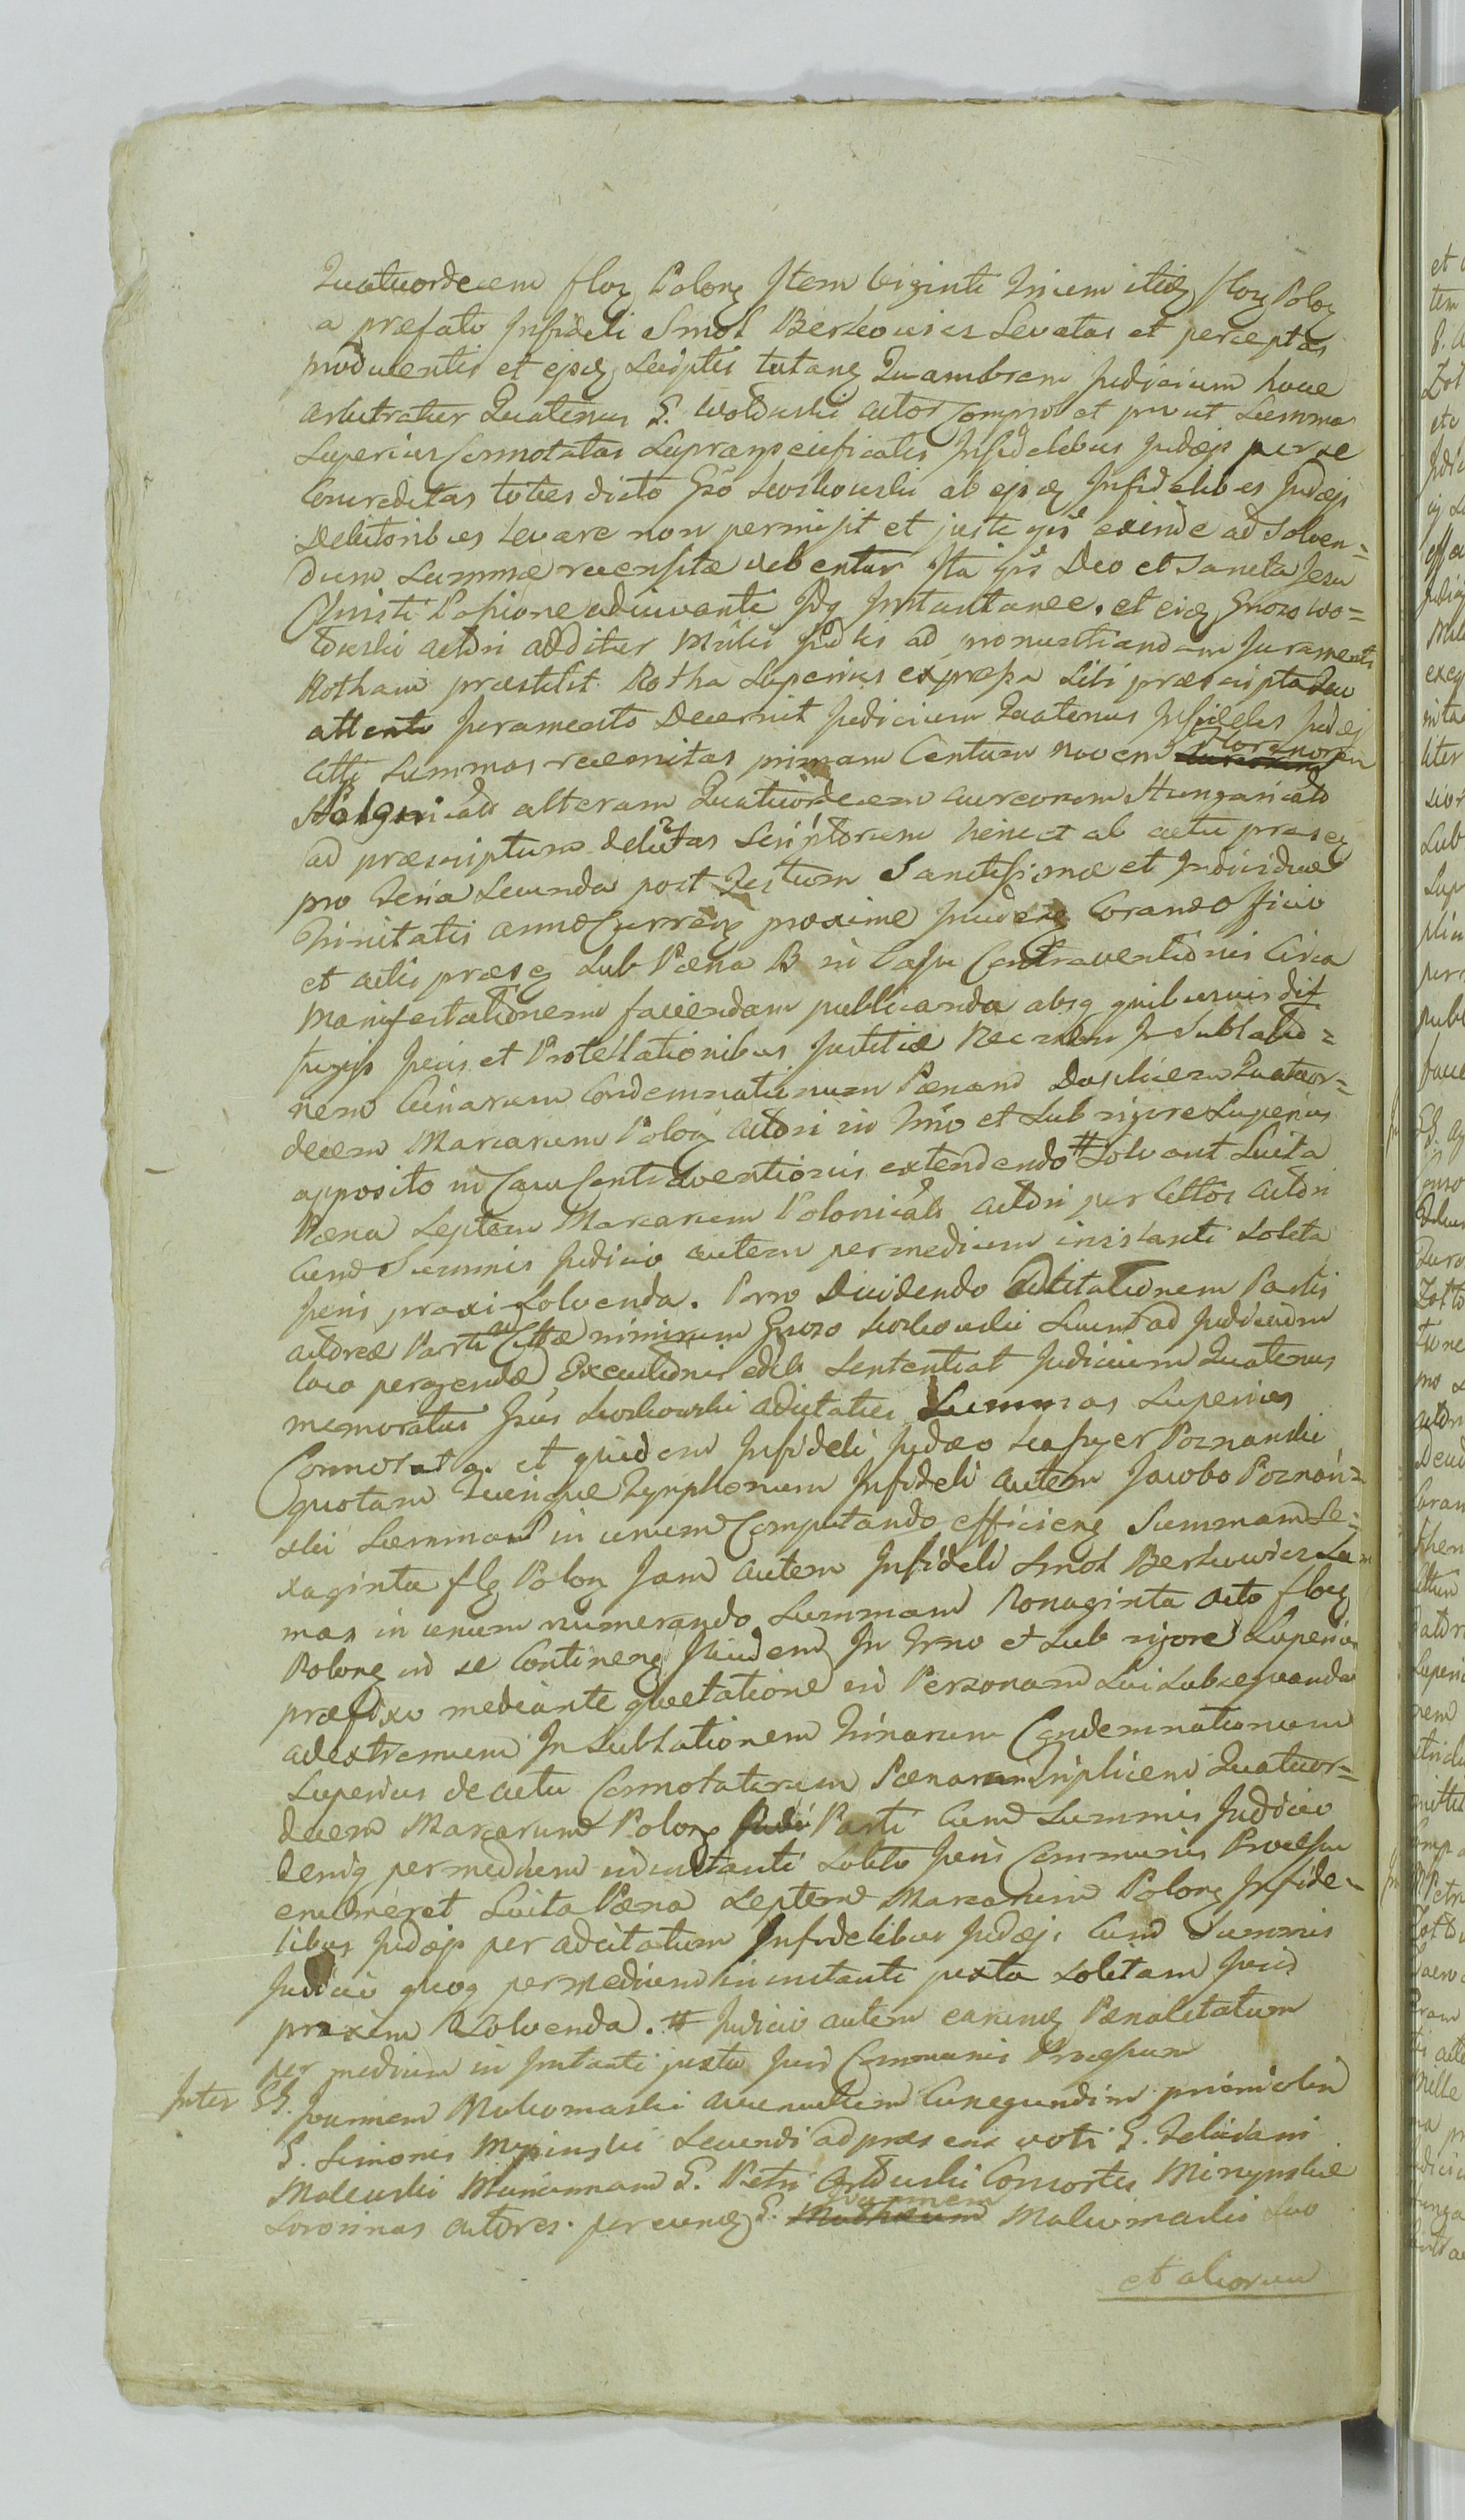 Quatuordecem flor Polon Item viginti Trium itidq flor Polon
a præfato Infideli Smol Berkowicz Levatas et perceptas
producentis et ejsdq Scriptis tutanq Quambrem Judicium hocce
arbitratur Quatenus G. Wolduski actor Comprob et prout Summa
Superius Connotatas Supranspecificatis Infidelibus Judæis per se
Concreditas toties dicto Gso Leoskowski ab ejsdq Infidelibus Judæis
Debitoribus levare non permisit et juste ipsi exinde ad Solven=
dum Summæ recensitæ debentur Ita ips Deo et Sancta Jesu
Christi Passione adiuvante Idq Instantanee. et eidq Gnoso Wo=
lduski actori additur Mnlis Judlis ad pronunctiandam Juramenti
Rotham præstitit Rotha Superius expressa Sibi præscripta Quo
attento Juramento Decernit Judicium Quatenus Infideles Judæi
Citti Summas recensitas primam Centum novem Florenorum
Polonicals alteram Quatuordecem aureorum Hungaricals
ad præscriptum debitas Scriptorum hinc et ab actu præseq
pro Feria Secunda post Festum Sanctissimæ et Individuæ
Trinitatis anno Curreng proxime Incideng Coram Officio
et actis præseq Sub Pæna B in Casu Contraventionis Circa
Manifestationem faciendam publicanda absq quibusvis dif
fugijs Juris et Protestationibus Justitiæ Nec non In Sublatio=
nem binarum Condemnationum Pænam Duplicem Quatuor=
decem Marcarum Polon actori in Trno et Sub rigore Superius
apposito in Casu Contraventionis extendendo # Solvant Luita
Pæna Septem Marcarum Polonicals actori per Cittos actori
Cum Summis Judicio autem per medium in instanti Solita
Juris praxi Solvenda. Porro Dividendo Adcitationem Partis
actoreæ Parti adCittæ nimirum Gnoso Leoskowski Secund ad Judicium
loco peragendæ Executionis edits Sententiat Judicium Quatenus
memoratus Gsus Leoskowski adcitatus Summas Superius
Connotatas et quidem Infideli Judæo Leaysyer Poznanski
quotam Quinque Tymphonum Infideli autem Jacobo Poznań=
ski Summas in unum Computando efficieng Summam Se=
xaginta flq Polon Jam autem Infideli Smol Berkowicz Sum
mas in unum numerando Summam Nonaginta octo flor
Polonq in se Contineng Itidem In Trno et Sub rigore Superius
præfixo mediante quietatione in Personam Sui Subsequenda
adextremum In Sublationem Trinarum Condemnationum
Superius de actu Connotatarum Pænam Triplicem Quatuor=
decem Marcarum Polonq Parti Cum Summis Judicio
deniq per medium in instanti Solito Juris Communis Processu
enumeret Luita Pæna Septem Marcarum Polonq Infide=
libus Judæis per adcitatum Infidelibus Judæis Cum Summis
Judicio quoq per medium in instanti juxta Solitam Juris
praxim Solvenda. # Judicio autem earundq Pænalitatum
per medium in Instanti juxta Juris Communis Processum
Inter GG. Joannem Malcomaski avunculum Cunegundim primi olim
G. Simonis Mypinski Secundi ad præsens voti G. Felidani
Maleuski Mariannam G. Petri Orłduski Consortes Mirzynskie
Sorosinas actores. per eundq G. Joannem Malcomaski Suo
et aliorum